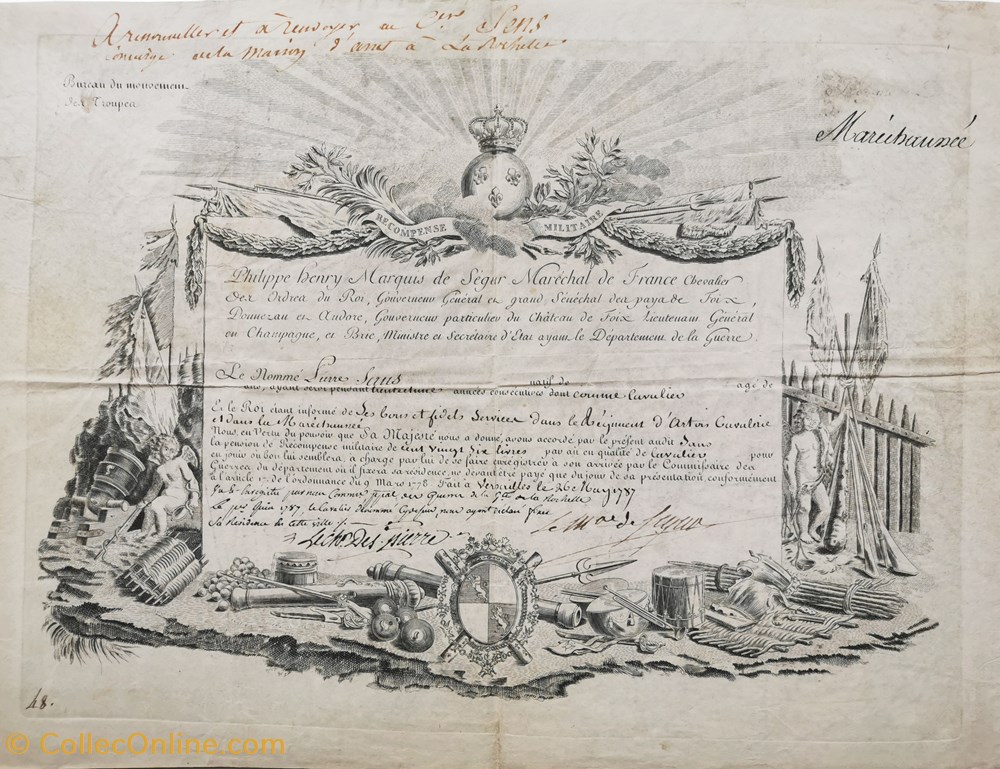 A renouveller et à renvoyer au Cer Sens
Concierge de la Maison d'arret à La Rochelle
Bureau du mouvement
des Troupes
Maréchaussée
RECOMPENSE MILITAIRE
Philippe henry Marquis de Ségur Maréchal de France Chevalier
des Ordres du Roi, Gouverneur Général et grand Sénéchal des pays de Foix,
Donnezan et Andore, Gouverneur particulier du Château de Foix Lieutenant Général
en Champagne, et Brie, Ministre et Secrétaire d'Etat ayant le Département de la Guerre.
Le Nommé Pierre Sans natif de agé de
ans, ayant servi pendant années consécutives dont comme Cavalier
Et le Roi étant informé de Ses bons et fidels Services dans le Régiment d'Artois Cavalerie
et dans la Maréchaussée
Nous, en Vertu du pouvoir que Sa Majesté nous a donné, avons accordé par le présent audit Sans
la pension de Récompense militaire de Cent vingt Six livres par an en qualité de Cavalier pour
en jouir où bon lui semblera, à charge par lui de se faire enregistrer à son arrivée par le Commissaire des
Guerres du département où il fixera sa résidence, ne devant être payé que du jour de sa présentation conformément
à l'article 17. de l'ordonnance du 9 Mars 1778. Fait à Versailles le 26 1787
par nous Commre des Guerres de la Gté de la Rochelle
Le per Juin 1787 le Cavalier nous ayant déclaré
Sa Residence en cette ville
Le Mal de Segur
Lechr Des pierre
48.
© CollecOnline.com